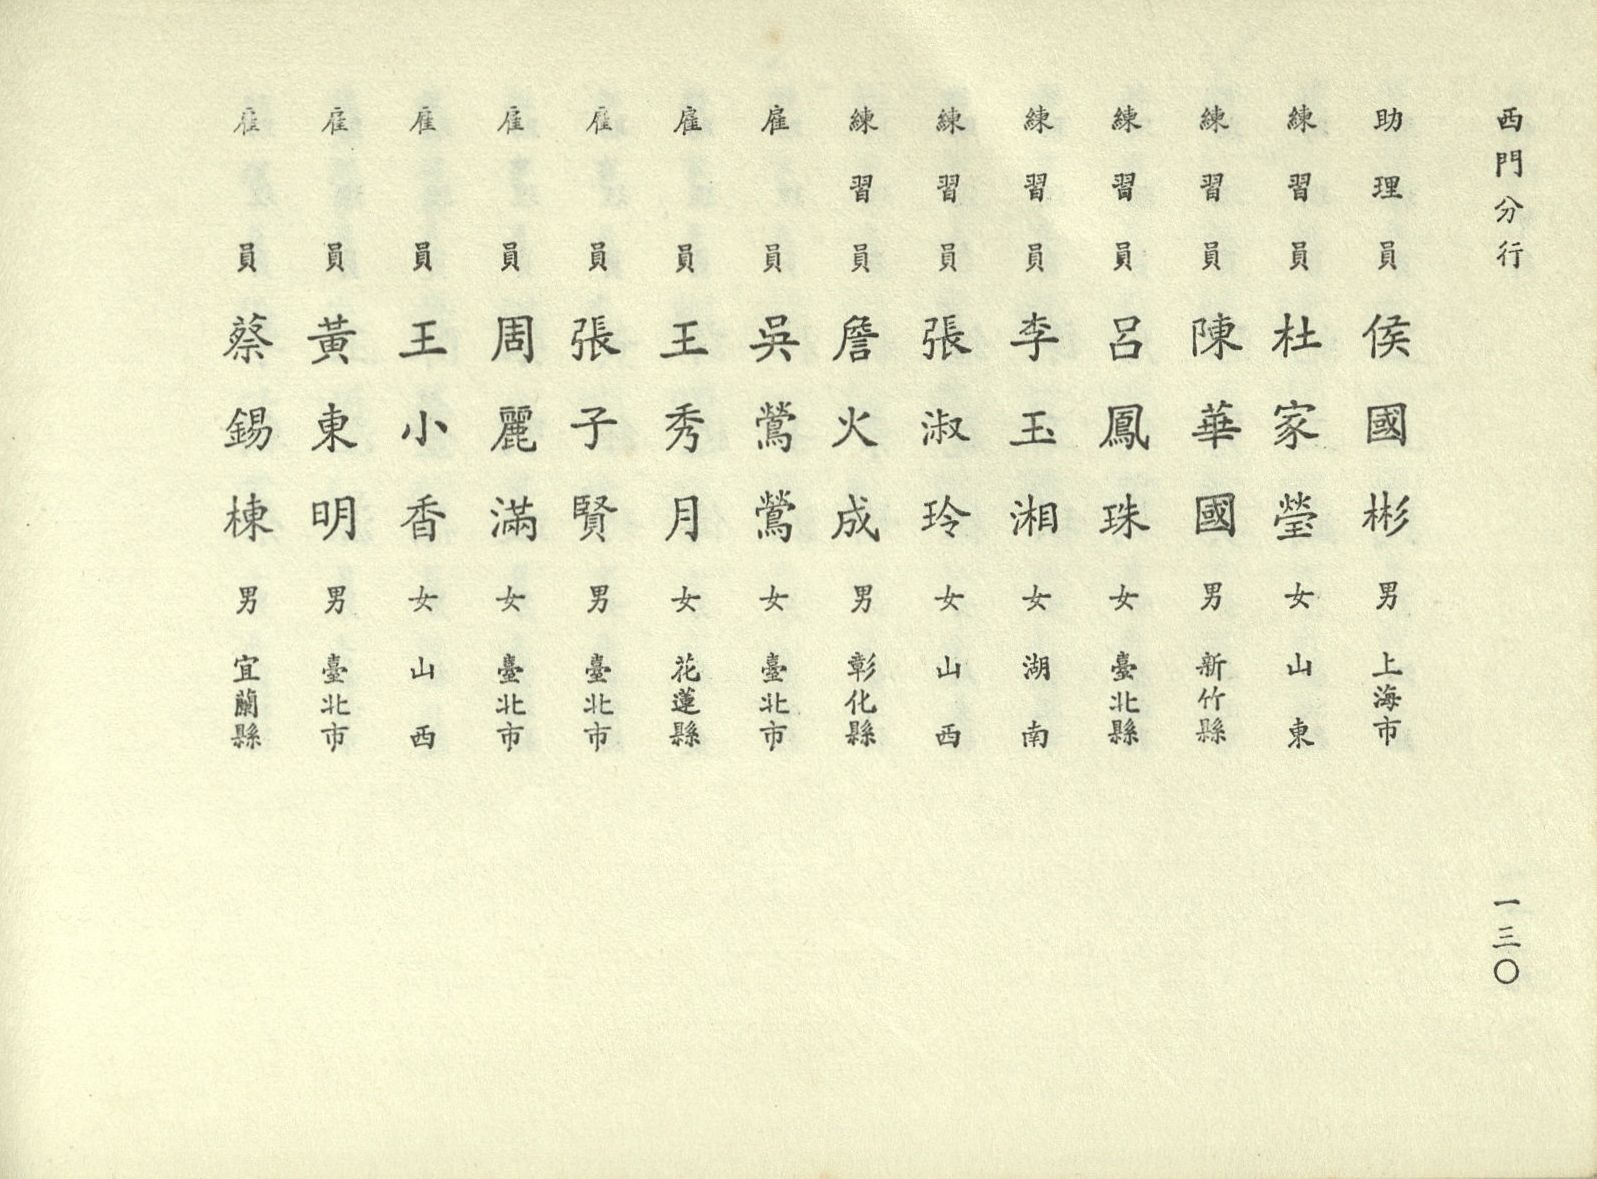 西門分行
一三〇
助理員 侯國彬 男 上海市
練習員 杜家瑩 女 山東
練習員 陳華國 男 新竹縣
練習員 呂鳳珠 女 臺北縣
練習員 李玉湘 女 湖南
練習員 張淑玲 女 山西
練習員 詹火成 男 彰化縣
雇員 吳鶯鶯 女 臺北市
雇員 王秀月 女 花蓮縣
雇員 張子賢 男 臺北市
雇員 周麗滿 女 臺北市
雇員 王小香 女 山西
雇員 黃東明 男 臺北市
雇員 蔡錫棟 男 宜蘭縣